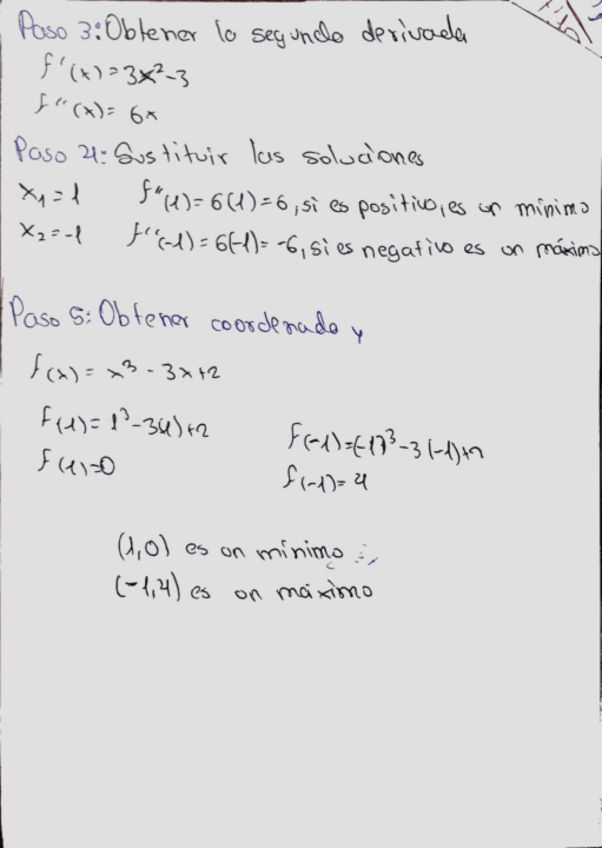 Paso 3: Obtener la segunda derivada
f'(x) = 3x²-3
f''(x) = 6x
Paso 4: Sustituir las soluciones
x₁ = 1 f''(1) = 6(1) = 6, si es positivo, es un mínimo
x₂ = -1 f''(-1) = 6(-1) = -6, si es negativo es un máximo
Paso 5: Obtener coordenada y
f(x) = x³ - 3x+2
f(1) = 1³-3(1)+2 f(-1) = (-1)³-3(-1)+2
f(1)=0 f(-1) = 4
(1,0) es un mínimo
(-1,4) es un máximo